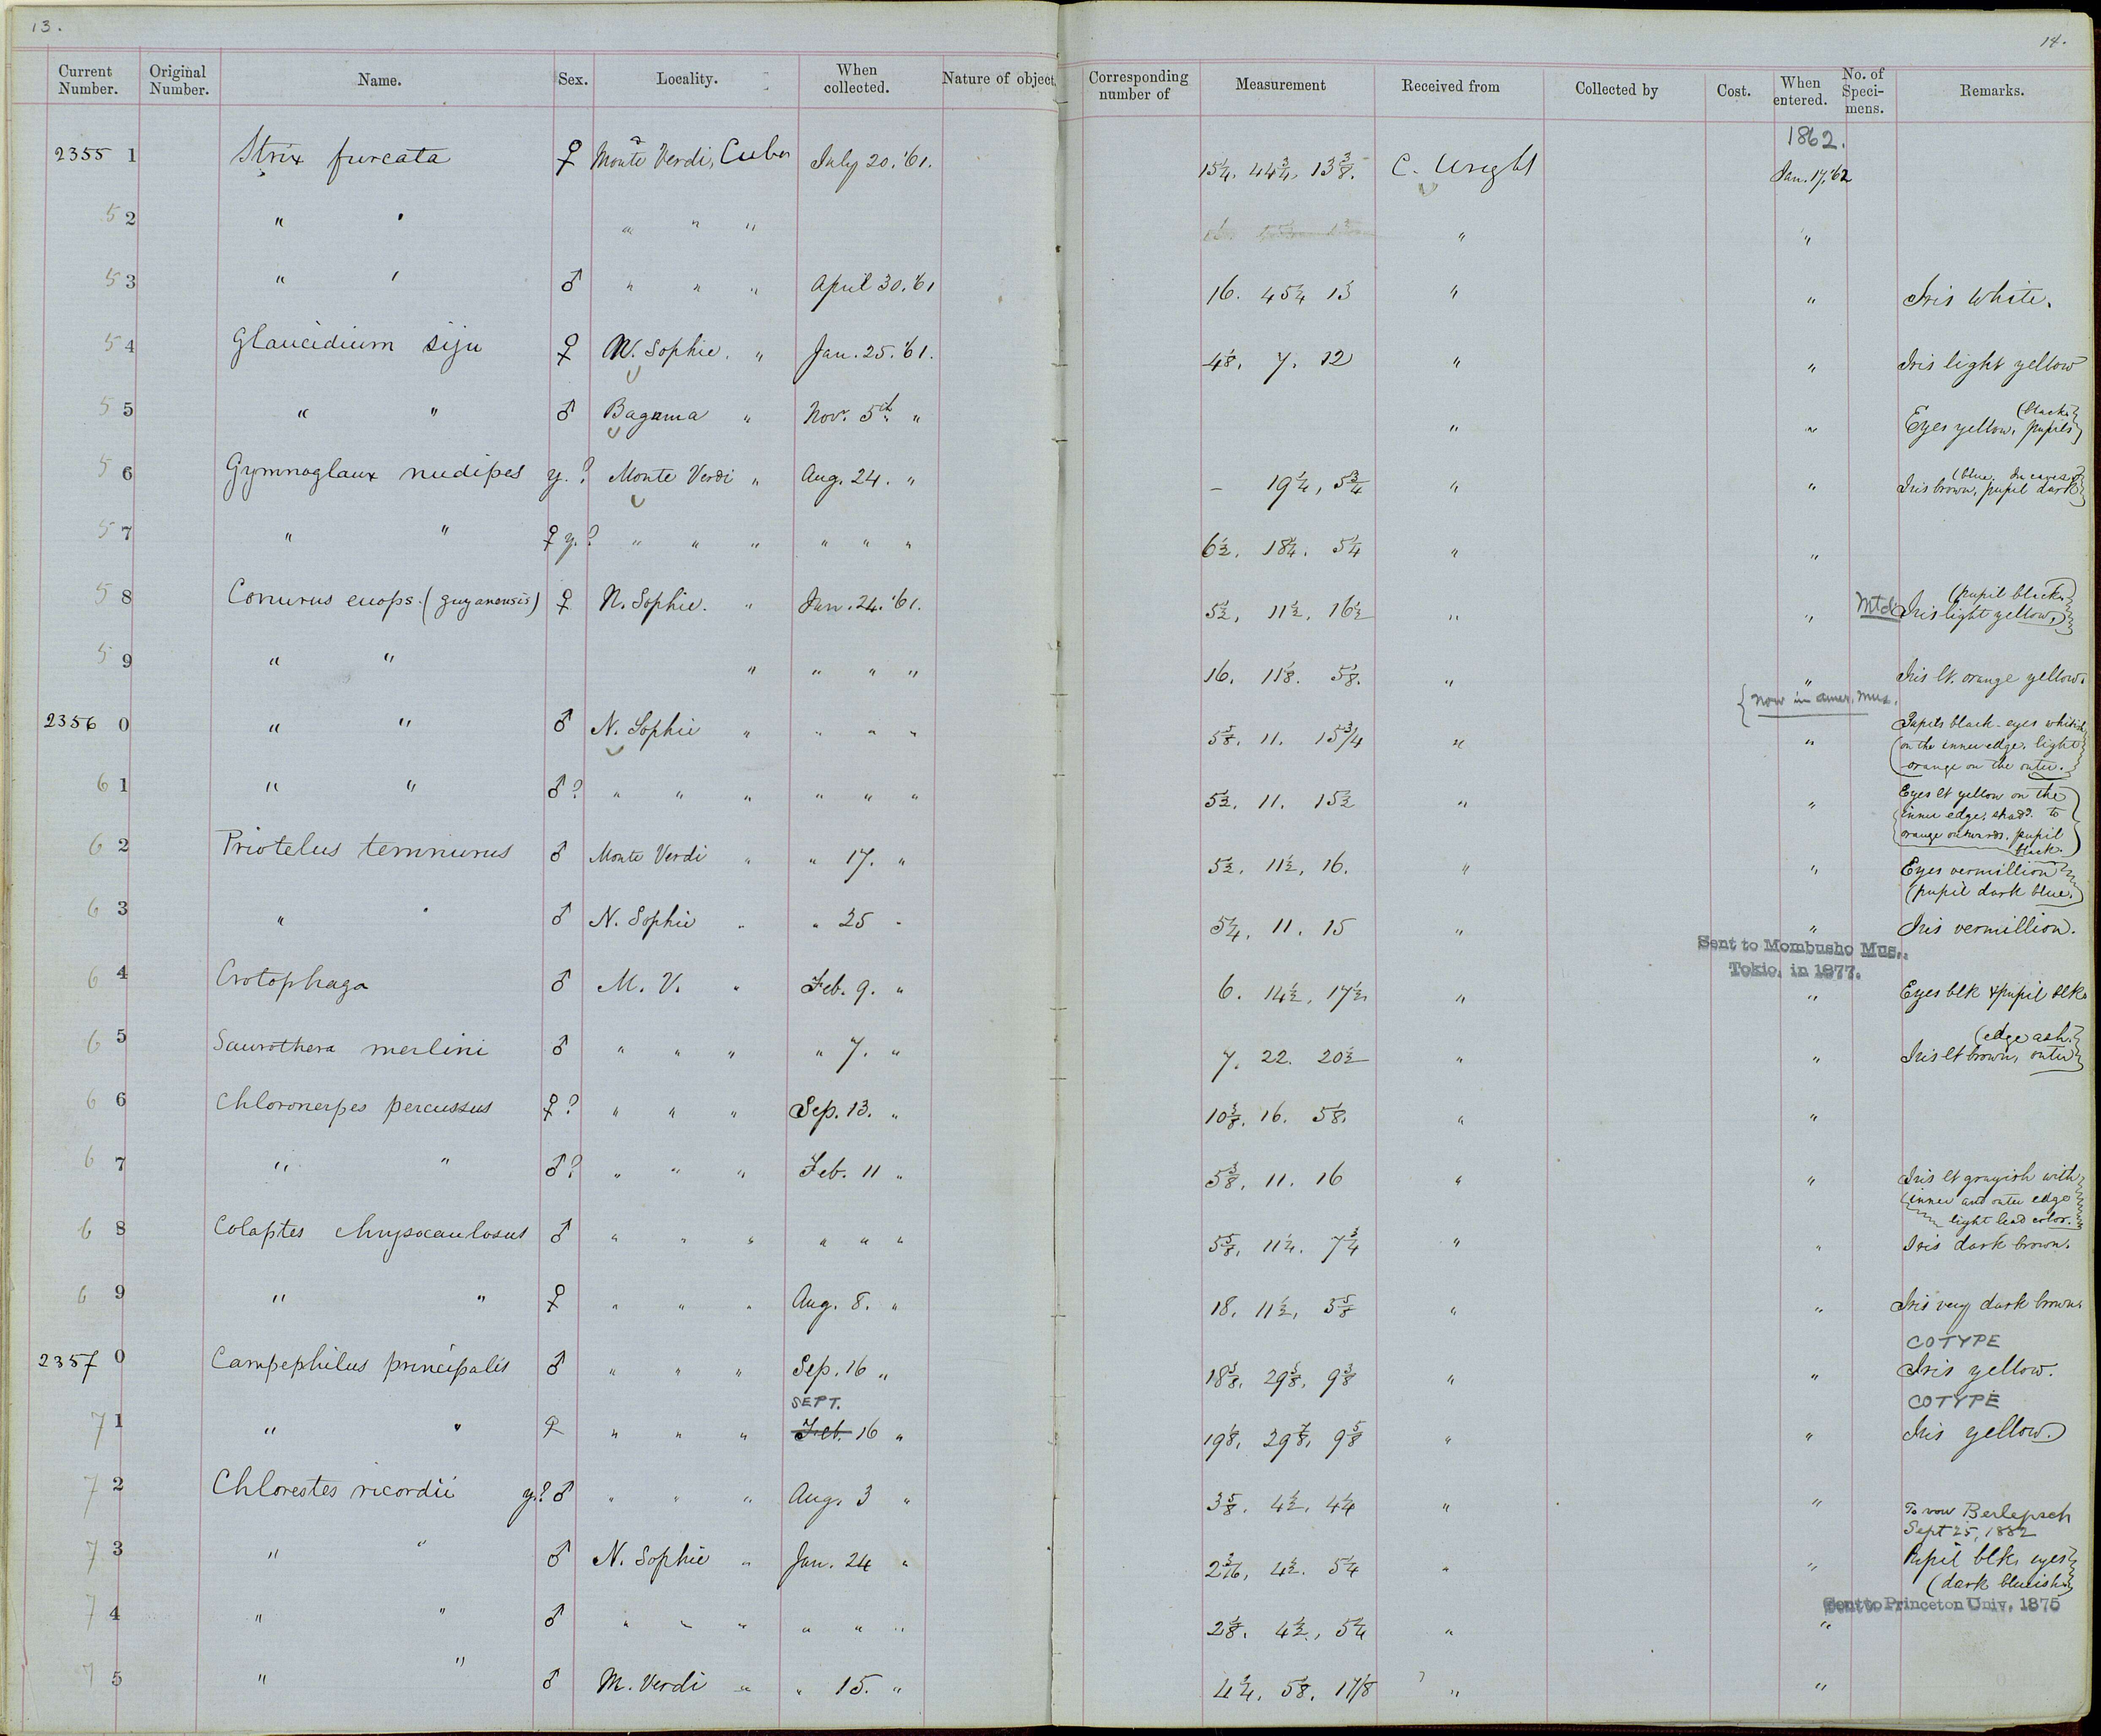 13.
14.
Current Number. Original Number. Name. Sex. Locality. When collected. Nature of object. Corresponding number of Measurement Received from Collected by Cost. When entered. No. of Speci-mens. Remarks.
1862.
2355 1 Strix furcata ♀ Monte Verdi, Cuba July 20. '61. 15¼, 44¾, 13⅜. C. Wright Jan. 17, '62
5 2 " " " " " " "
5 3 " " ♂ " " " April 30. '61 16. 45¼ 13 " " Iris white.
5 4 Glaucidium siju ♀ N. Sophie. " Jan. 25. '61. 4⅛, 7. 12 " " Iris light yellow
5 5 " " ♂ Bagama " Nov. 5th " " " Eyes yellow, pupils (black.
5 6 Gymnoglaux nudipes y. ? Monte Verdi " Aug. 24. " – 19¼, 5¾ " " Iris brown, pupil dark (blue. In caves.
5 7 " " ♀ y. ? " " " " " " 6½, 18¼. 5¼ " "
5 8 Conurus euops. (guyanensis) ♀ N. Sophie. " Jan. 24. '61. 5½, 11½, 16½ " " Mtd. Iris light yellow, (pupil black.
5 9 " " " " " " 16. 11⅛. 5⅛. " " Iris lt. orange yellow.
{now in Amer. Mus.
2356 0 " " ♂ N. Sophie " " " " 5⅜. 11. 15¾ " " Pupils black - eyes whitish
(on the inner edge. light
orange on the outer.
6 1 " " ♂? " " " " " " 5½. 11. 15½ " " Eyes lt yellow on the
(inner edge, shadd. to
orange outwards, pupil
black.
6 2 Priotelus temnurus ♂ Monte Verdi " " 17. " 5½. 11½, 16. " " Eyes vermillion
(pupil dark blue.)
6 3 " " ♂ N. Sophie " " 25 " 5¼, 11. 15 " " Iris vermillion.
Sent to Mombusho Mus.,
Tokio, in 1877.
6 4 Crotophaga ♂ M. V. " Feb. 9. " 6. 14½, 17½, " " Eyes blk & pupil blk.
6 5 Saurothera merlini ♂ " " " " 7. " 7. 22. 20½ " " Iris lt brown, outer (edge ash.
6 6 Chloronerpes percussus ♀? " " " Sep. 13. " 10⅜. 16. 5⅛. " "
6 7 " " ♂? " " " Feb. 11 " 5⅜, 11. 16 " " Iris lt grayish with
(inner and outer edge
light lead color.
6 8 Colaptes chrysocaulosus ♂ " " " " " " 5⅝, 11¼. 7¾ " " Iris dark brown.
6 9 " " ♀ " " " Aug. 8. " 18. 11½, 3⅝ " " Iris very dark brown.
COTYPE
2357 0 Campephilus principalis ♂ " " " Sep. 16 " 18⅜, 29⅝, 9⅜ " " Iris yellow.
SEPT. COTYPE
7 1 " " ♀ " " " Feb. 16 " 19⅛, 29⅞, 9⅝ " " Iris yellow.
7 2 Chlorestes ricordii y.? ♂ " " " Aug. 3 " 3⅝. 4½, 4¼ " "
To von Berlepsch
Sept 25, 1882
7 3 " " ♂ N. Sophie " Jan. 24 " 4½. 5¼ " " Pupil blk, eyes
(dark bluish.
Sent to Princeton Univ. 1875
7 4 " " ♂ " " " " " " 2⅛. 4½, 5¼ " "
7 5 " " ♂ M. Verdi " " 15. " 4¼, 5⅛. 17/8 " "